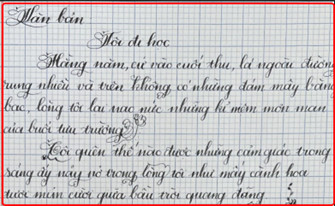 Nhàn bán
Tôi đi học
Hằng năm, cứ vào cuối thu, lá ngoài đường
rụng nhiều và trên không có những đám mây bàng
bạc, lòng tôi lại nao nức những kỉ niệm mơn man
của buổi tựu trường.
Tôi quên thế nào được những cảm giác trong
sáng ấy nảy nở trong lòng tôi như mấy cánh hoa
tươi mỉm cười giữa bầu trời quang đãng.